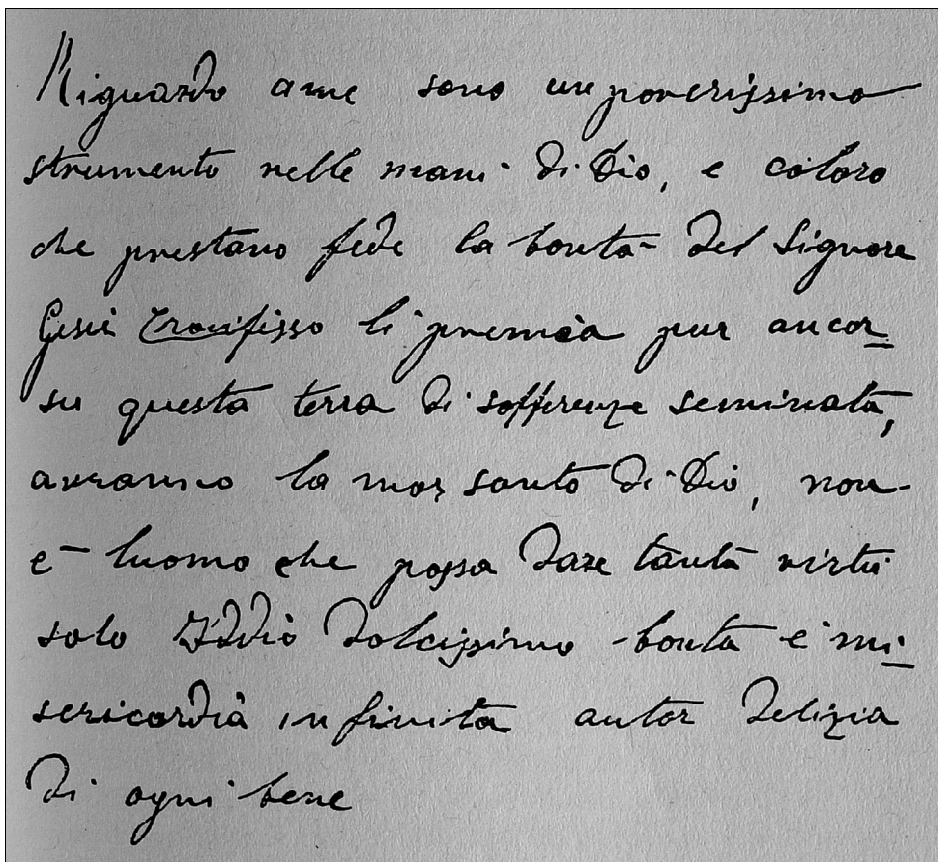 Riguardo a me sono un poverissimo
strumento nelle mani di Dio, e coloro
che prestano fede la bontà del Signore
Gesù Crocifisso li premia pur ancor
su questa terra di sofferenze seminata,
avranno la santo di Dio, non
è luomo che possa dare tanta virtù
solo Iddio dolcissimo bontà e mi
sericordia infinita autor delizia
di ogni bene